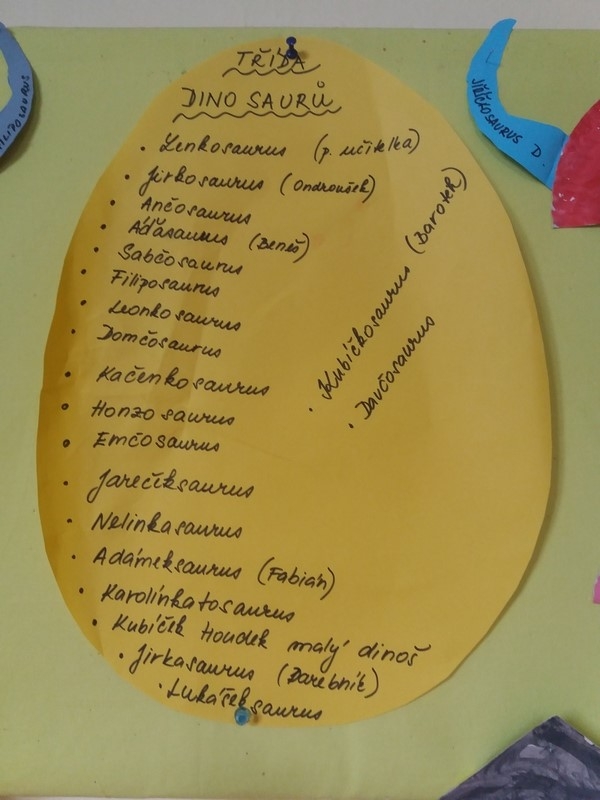 TŘÍDA
DINOSAURŮ
• Lenkosaurus (p. učitelka)
• Jirkosaurus (Ondroušek)
• Ančosaurus
• Áďasaurus (Beneš)
• Sabčosaurus
• Filiposaurus
• Leonkosaurus
• Domčosaurus
• Kačenkosaurus
• Honzosaurus
• Emčosaurus
• Jarečíksaurus
• Nelinkasaurus
• Adámeksaurus (Fabián)
• Karolínkatosaurus
• Kubíček Houdek malý dinoš
• Jirkasaurus (Darebník)
• Lukášeksaurus
• Kubíčkosaurus (Bartek)
• Davčosaurus
JIŘÍČKOSAURUS D.